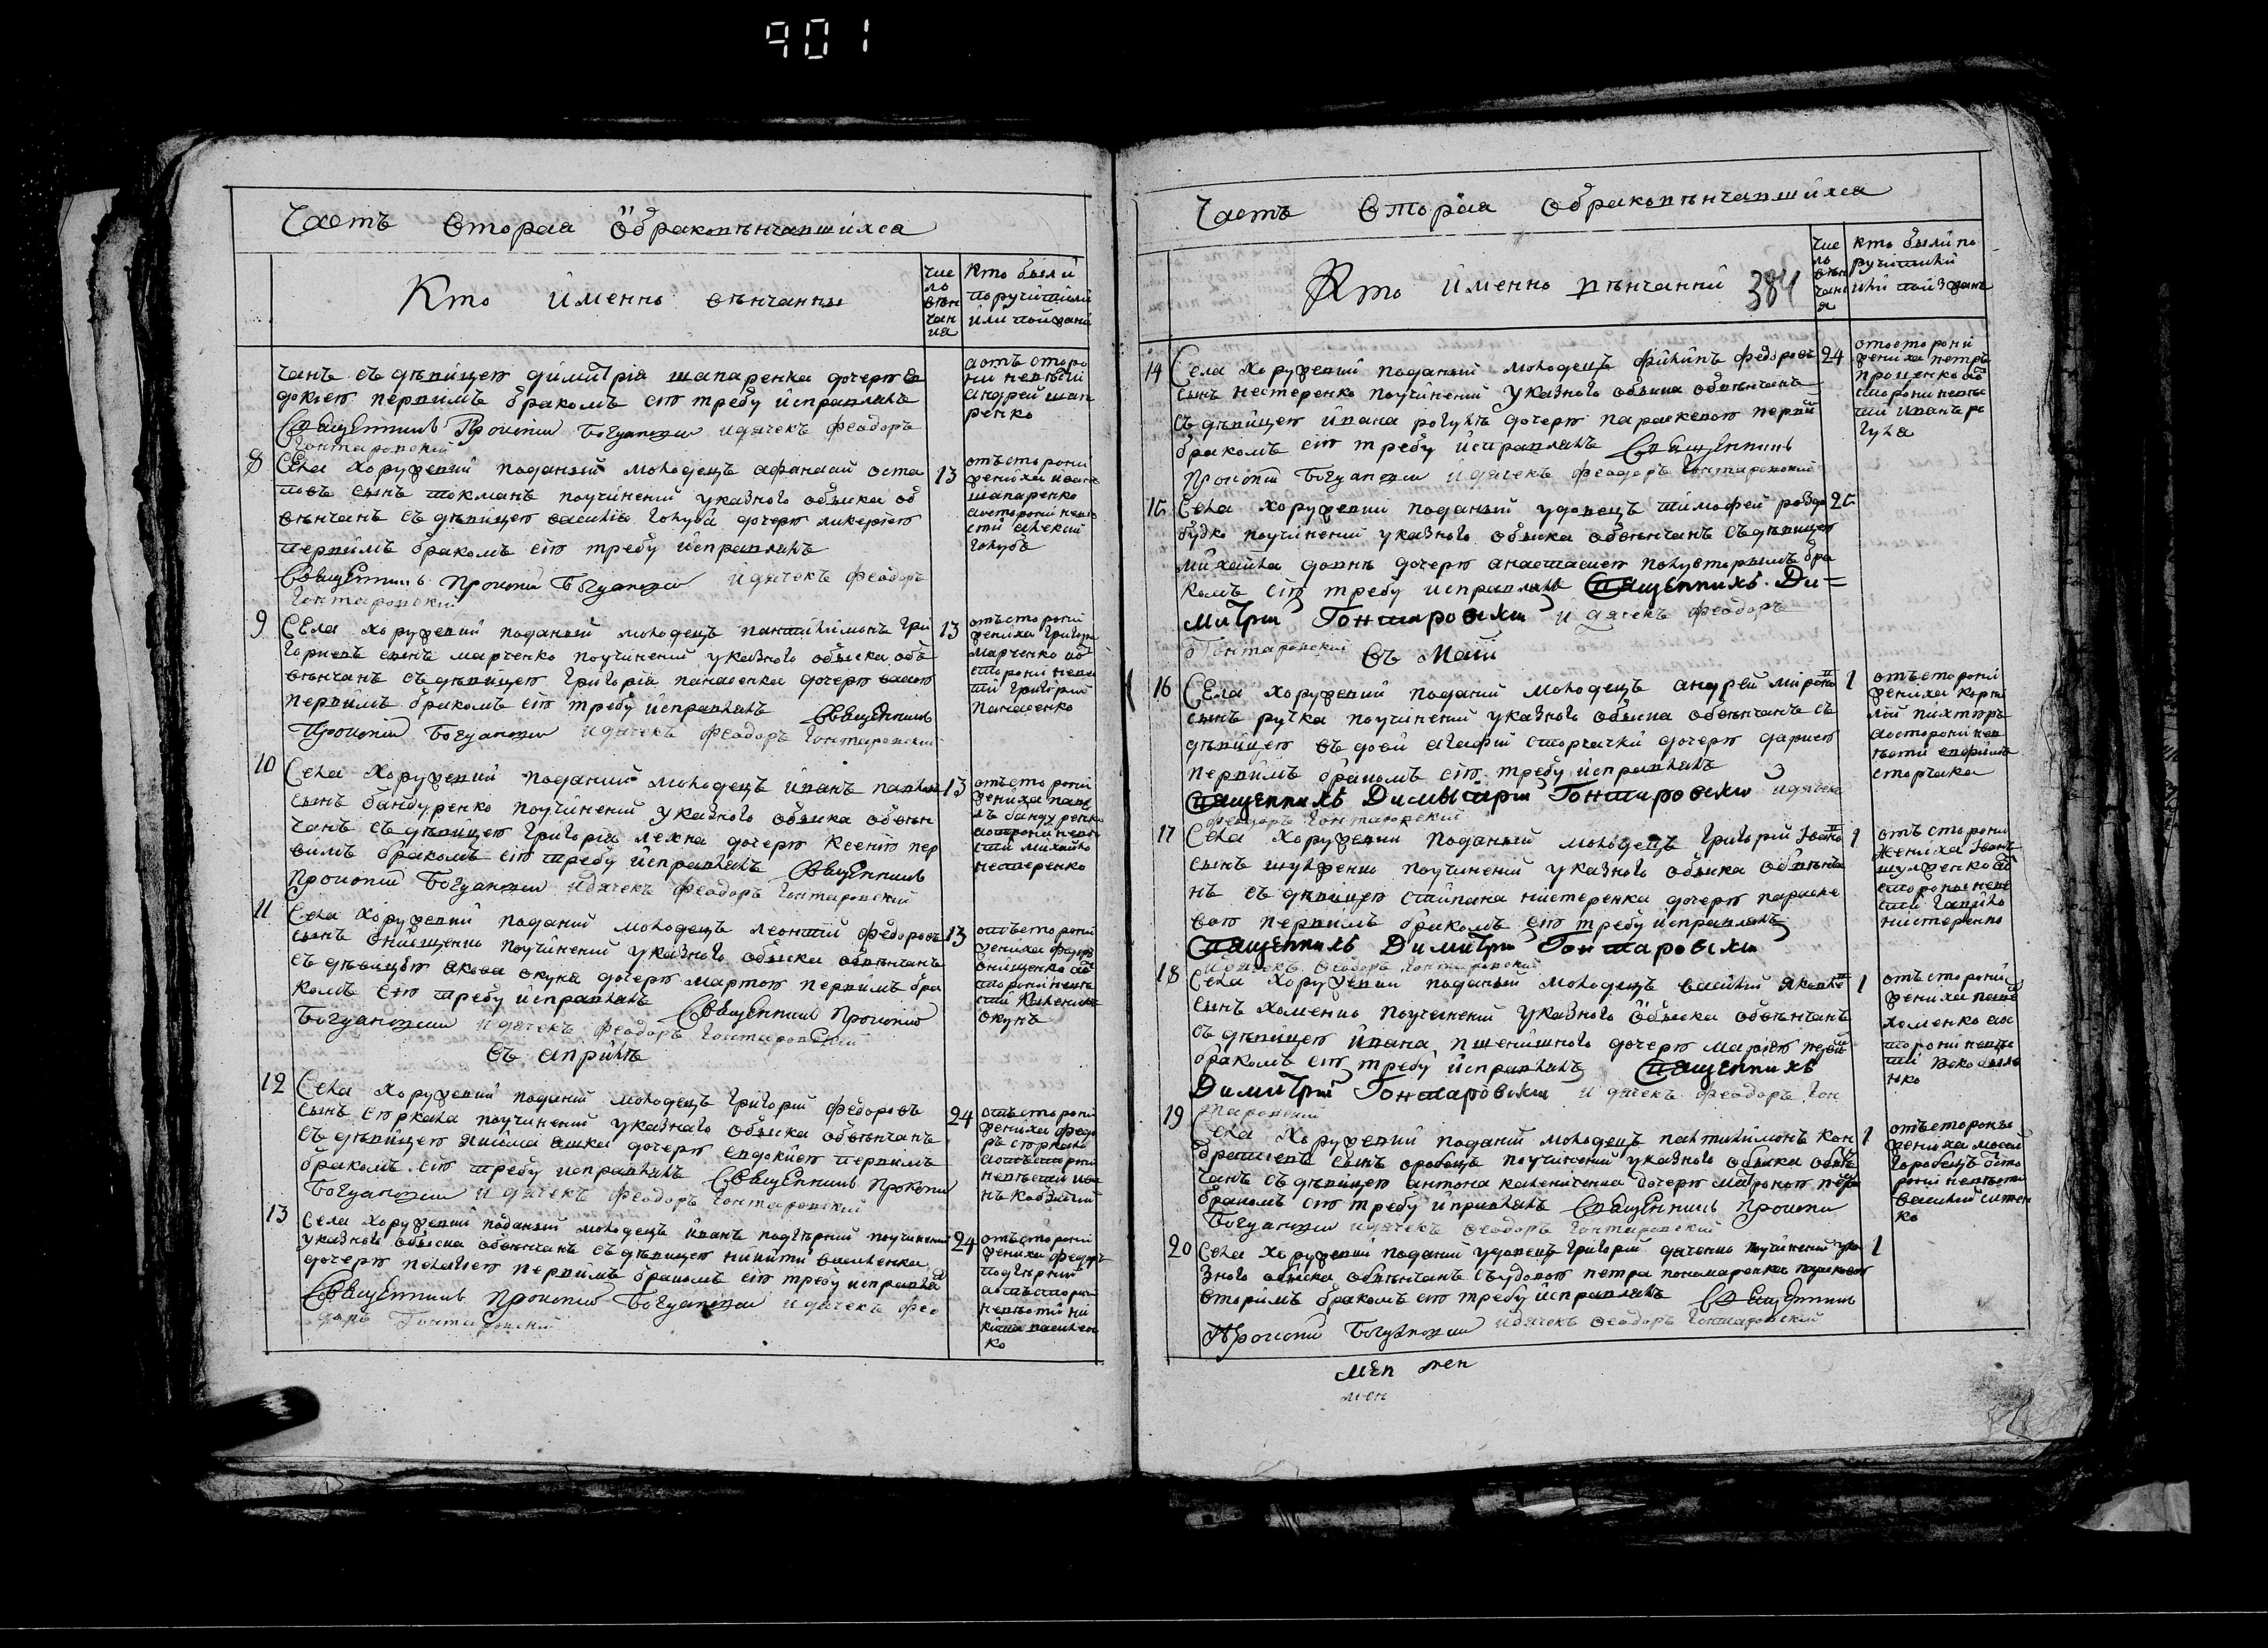 901
Часть вторая о браковѣнчавшихся
Кто именно вѣнчанны
чис
ло
вѣн
чан
ия
Кто были
поручители
или поизвани
чанъ съ дѣвицею димитрія шапаренка дочерю ев
докіею первимъ бракомъ сію требу исправлялъ
Священникъ Прокопій Богуановскій и дячекъ Феодоръ
Гонтаровскій
а отъ сторо
ни невѣсти
андрей шап
ренко
8
Села Хоружевки поданый молодецъ афанасий оста
повъ сынъ токманъ по учинений указного обыска об
вѣнчанъ съ дѣвицею василія голуба дочерю ликеріею
первимъ бракомъ сію требу исправлялъ
Священникъ Прокопій и дячекъ Феодоръ
Гонтаровский
13
отъ сторони
жениха иванъ
шапаренко
а отсторони невѣ
сти алексий
голубъ
9
Села Хоружевки поданый молодецъ пантилимонъ гри
гориевъ сынъ марченко по учинений указного обыска объ
вѣнчанъ съ дѣвицею григорія панасенка дочерю
первимъ бракомъ сію требу исправлялъ Священникъ
Прокопій и дячекъ Феодоръ Гонтаровский
13
отъ сторони
жениха григори
марченко аот
сторони невѣ
сти григорий
панасенко
10
Села Хоружевки поданий молодецъ иванъ павловъ
сынъ бандуренко по учинений указного обыска обвѣн
чанъ съ дѣвицею григорія лехна дочерю ксениею пер
вимъ бракомъ сію требу исправлялъ Священникъ
Прокопий и дячекъ Феодоръ Гонтаровский
13
отъ сторони
жениха паве
лъ бандуренко
аотсторони невѣ
сти михайло
нестеренко
11
Села Хоружевки поданий молодецъ леонтий федоровъ
сынъ онищенко по учинений указного обыска обвѣнчанъ
съ дѣвицею якова окуня дочерю мартою первимъ бра
комъ сію требу исправлялъ Священникъ Прокопій
и дячекъ Феодоръ Гонтаровский
13
отъ сторони
жениха федоръ
онищенко аот
сторони невѣ
сти каленикъ
окунъ
въ априлѣ
12
Села Хоружевки поданий молодецъ григорий федоровъ
сынъ стркала по учинений указного обыска обвѣнчанъ
съ дѣвицею дочерю евдокиею первимъ
бракомъ сію требу исправлялъ Священникъ Прокопій
и дячекъ Феодоръ Гонтаровский
24
отъ сторони
жениха федо
ръ стркало
аотъ сторони
невѣсти ива
нъ
13
Села Хоружевки поданый молодецъ иванъ подгѣрний по учинений
указного обыска обвѣнчанъ съ дѣвицею никити василенка
дочерю пелагиею первимъ бракомъ сію требу исправлялъ
Священникъ Прокопій и дячекъ Фео
доръ Гонтаровский
24
отъ сторони
жениха федоръ
подгѣрний
аотъ сторони
невѣсти ни
кита василен
ко
Часть вторая о браковѣнчавшихся
Кто именно вѣнчанни
384
чис
ло
вѣн
чани
я
кто были по
ручители
или поизвани
14
Села Хоружевки поданый молодецъ филипъ федоровъ
сынъ нестеренко по учинений указного обыска обвѣнчанъ
съ дѣвицею ивана рогулѣ дочерю параскевою первим
бракомъ сію требу исправлялъ Священникъ
Прокопій и дячекъ Феодоръ Гонтаровский
24
отъ сторони
жениха петръ
проценко аот
сторони невѣс
ти иванъ ро
гуля
15
Села Хоружевки поданый удовецъ тимофей
по учинений указного обыска обвѣнчанъ съ дѣвицею
михайла дочерю анастасиею полувторымъ бра
комъ сію требу исправлялъ Священникъ Ди=
митрій Гонтаровскій и дячекъ Феодоръ
Гонтаровский
25
въ маий
16
Села Хоружевки поданий молодецъ андрей мироновъ
сынъ ручка по учинений указного обыска обвѣнчанъ съ
дѣвицею въдови агафий сторчачки дочерю дариею
первимъ бракомъ сію требу исправлялъ
Священникъ Димытрій Гонтаровскій и дячекъ
Феодоръ Гонтаровский
1
отъ сторони
жениха корни
лий
аотсторони нев
ѣсти
сторчака
17
Села Хоружевки поданый молодецъ григорий ивановъ
сынъ шулженко по учинений указного обыска обвѣнча
нъ съ дѣвицею стипана нистеренка дочерю параске
вою первимъ бракомъ сію требу исправлялъ
Священникъ Димитрій Гонтаровскій
и дячекъ Феодоръ Гонтаровский
1
отъ сторони
жениха иванъ
шулженко аот
стороны невѣ
сти гаврило
нистеренко
18
Села Хоружевки поданый молодецъ василий яковлев
сынъ хоменко по учинений указного обыска обвѣнчанъ
съ дѣвицею ивана пшенишного дочерю мариею первим
бракомъ сію требу исправлялъ Священникъ
Димитрій Гонтаровскій и дячекъ Феодоръ Гон
таровский
1
отъ сторони
жениха
хоменко аот
сторони невѣс
ти
19
Села Хоружевки поданий молодецъ пантилимонъ кон
дратиевъ сынъ оробецъ по учинений указного обыска обвѣн
чанъ съ дѣвицею антона каленичения дочерю матроною перви
бракомъ сію требу исправлялъ Священникъ Прокопій
и дячекъ Феодоръ Гонтаровский
1
отъ стороны
жениха мосий
горобецъ отсто
рони невѣсти
василий
20
Села Хоружевки поданий удовецъ григорий дяченко по учинений ука
зного обыска обвѣнчанъ съ удовою петра пономаренка
вторимъ бракомъ сію требу исправлялъ Священникъ
Прокопій и дячекъ Феодоръ Гонтаровский
1
мен мен
мен